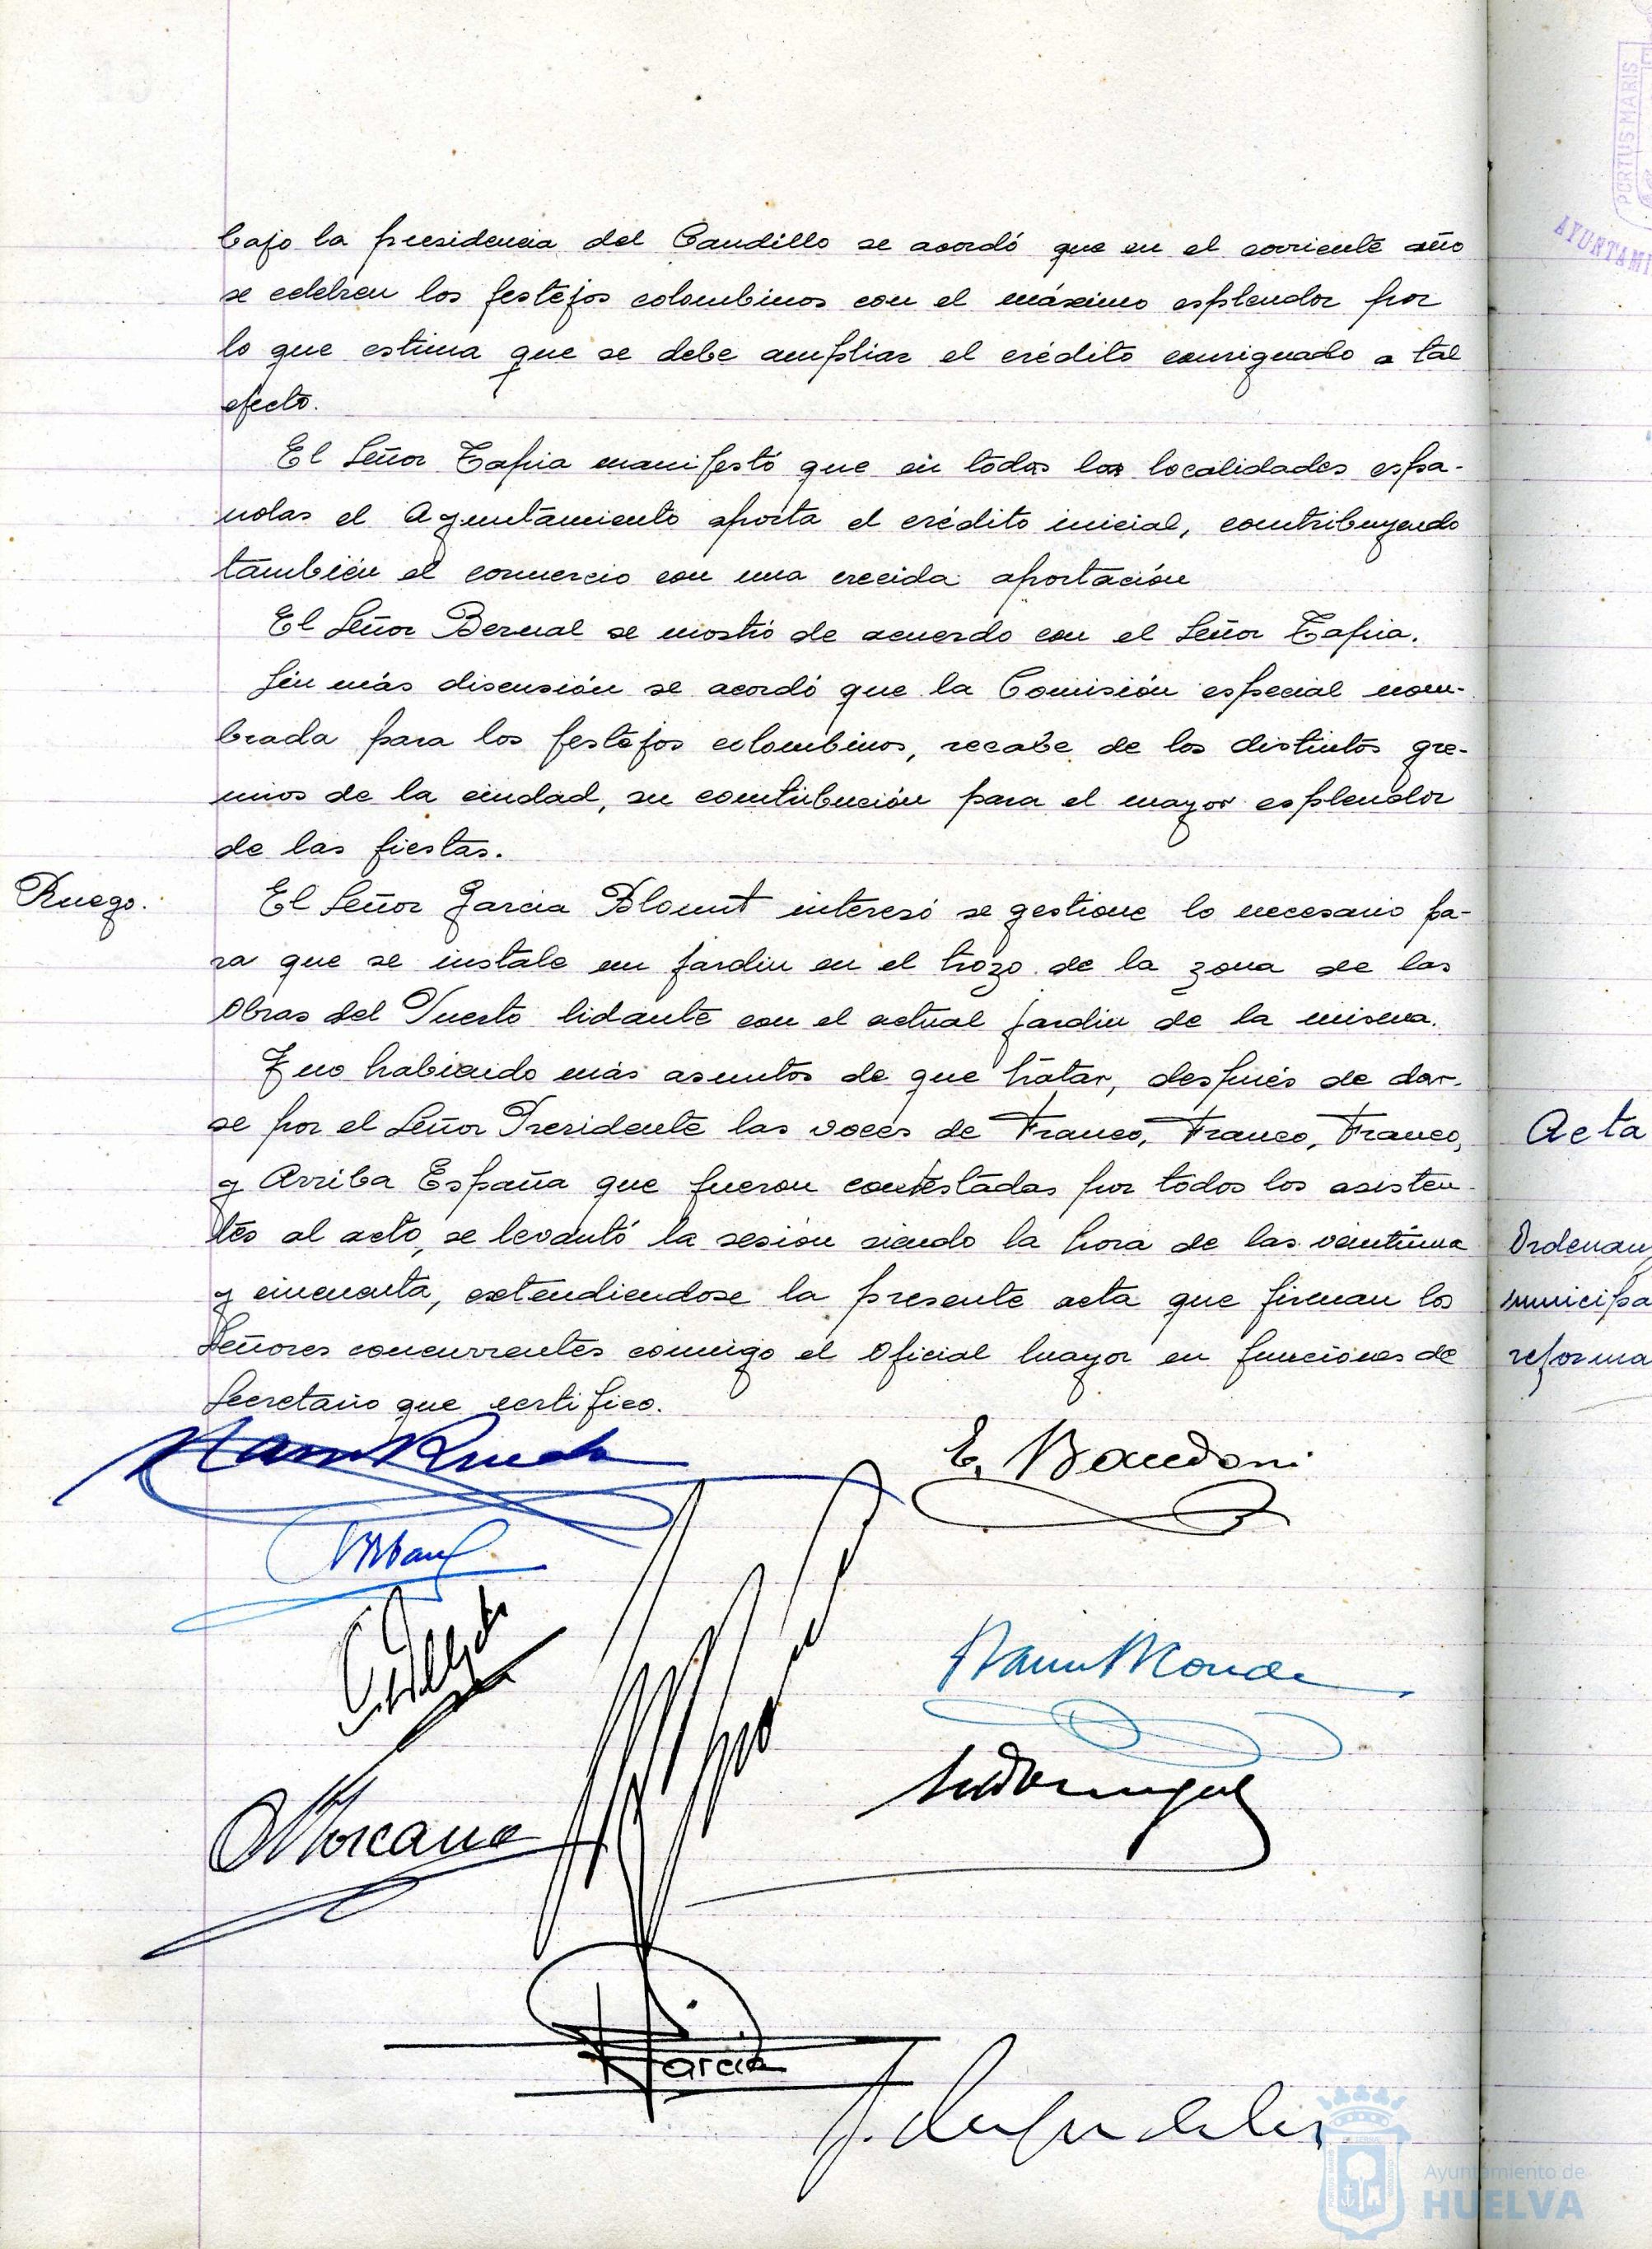 bajo la presidencia del Caudillo se acordó que en el corriente año
se celebren los festejos colombinos con el máximo esplendor por
lo que estima que se debe ampliar el crédito consignado a tal
efecto.
El Señor Tapia manifestó que en todas las localidades espa-
ñolas el Ayuntamiento aporta el crédito inicial, contribuyendo
también el comercio con una crecida aportación
El Señor Bernal se mostró de acuerdo con el Señor Tapia.
Sin más discusión se acordó que la Comisión especial nom-
brada para los festejos colombinos, recabe de los distintos gre-
mios de la ciudad, su contribución para el mayor esplendor
de las fiestas.
Ruego.
El Señor Garcia Blount interesó se gestione lo necesario pa-
ra que se instale un jardin en el trozo de la zona de las
Obras del Puerto lidante con el actual jardin de la misma.
Y no habiendo más asuntos de que tratar, después de dar-
se por el Señor Presidente las voces de Franco, Franco, Franco,
y Arriba España que fueron contestadas por todos los asisten-
tes al acto, se levantó la sesión siendo la hora de las veintiuna
y cincuenta, extendiendose la presente acta que firman los
Señores concurrentes conmigo el Oficial Mayor en funciones de
Secretario que certifico.
E.
Garcia
PORTUS MARIS
AYUNTAMI
Acta
Ordenan
municipa
reforma
Ayuntamiento de
HUELVA